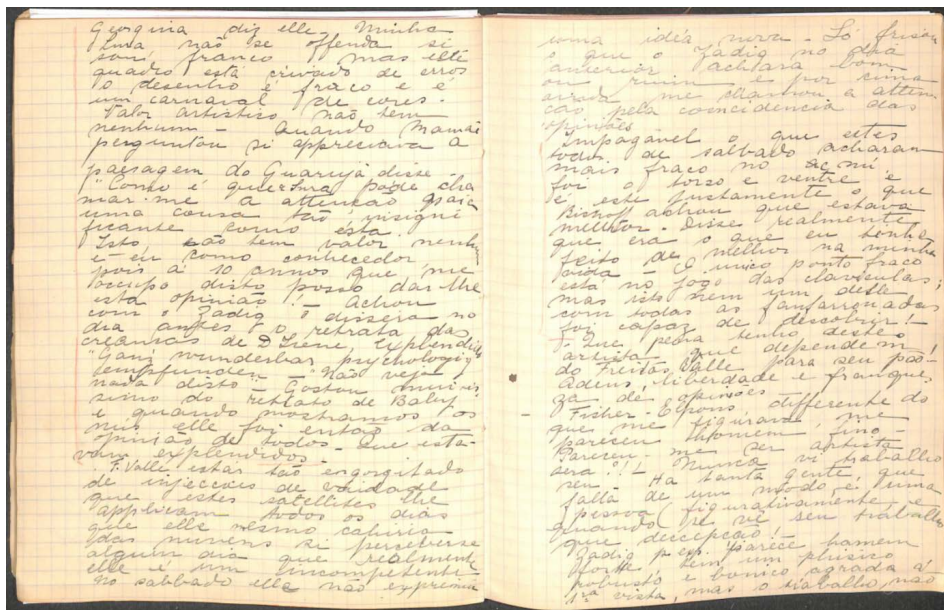 Georgina diz elle. Minha
Luna não se offenda si
sou franco mas este
quadro está crivado de erros
o desenho é fraco e é
um carnaval de cores.
Valor artistico não tem
nenhum - Quando Mamãe
perguntou si appreciava a
paesagem do Guarujá disse
"Como é que Snra pode cha
mar-me a attenção para
uma cousa tão insigni
ficante como esta.
Isto não tem valor nenhum
e eu como conhecedor
pois á 10 annos que me
occupo disto posso dar-lhe
esta opinião! - Achou
com o Zadig o dissera no
dia antes o retrato das
creanças de D Irene, explendido
"Ganz wunderbar psychologig
empfunden - "Não vejo
nada disto" - Gostou muiris
simo do retrato de Baby
e quando mostramos os
nús elle foi então da
opinião de todos - Que esta-
vam explendidos -
F. Valle estar tão engorgitado
de injecções de vaidade
que estes satellites lhe
applicam todos os dias
que elle mesmo cahiria
das nuvens si percebesse
algum dia que realmente
elle é um incompetente -
No sabbado elle não exprimiu
uma idéa nova - Só frisou
o que o Zadig no dia
anterior achára bom
ou ruim e por cima
me chamou a atten
ção pela coincidencia das
opiniões
Impagavel o que estes
todos de sabbado acharam
mais fraco no nú
foi o torso e ventre e
é este justamente o que
Bishof achou que estava
melhor - Disse realmente
que era o que eu tenho
feito de melhor na minha
vida - O unico ponto fraco
está no jogo das claviculas;
mas isto nem um delle
com todas as fanfarronadas
foi capaz de descobrir! -
Que pena tenho destes
artistas que dependem
do Freitas Valle para seu pas-
adens, liberdade e franque
za de opiniões
- Fisher-Elpons, differente do
que me figurava, me
pareceu homem fino -
Pareceu-me ser artista
será?!! - Nunca vi trabalho
seu - Ha tanta gente que
falla de um modo, é uma
pessoa (figurativamente e
quando se vê seu trabalho
que decepção! -
Zadig p. ex. parece homem
forte tem um phisico
robusto e bonico, agrada á
1ra vista, mas o trabalho, não